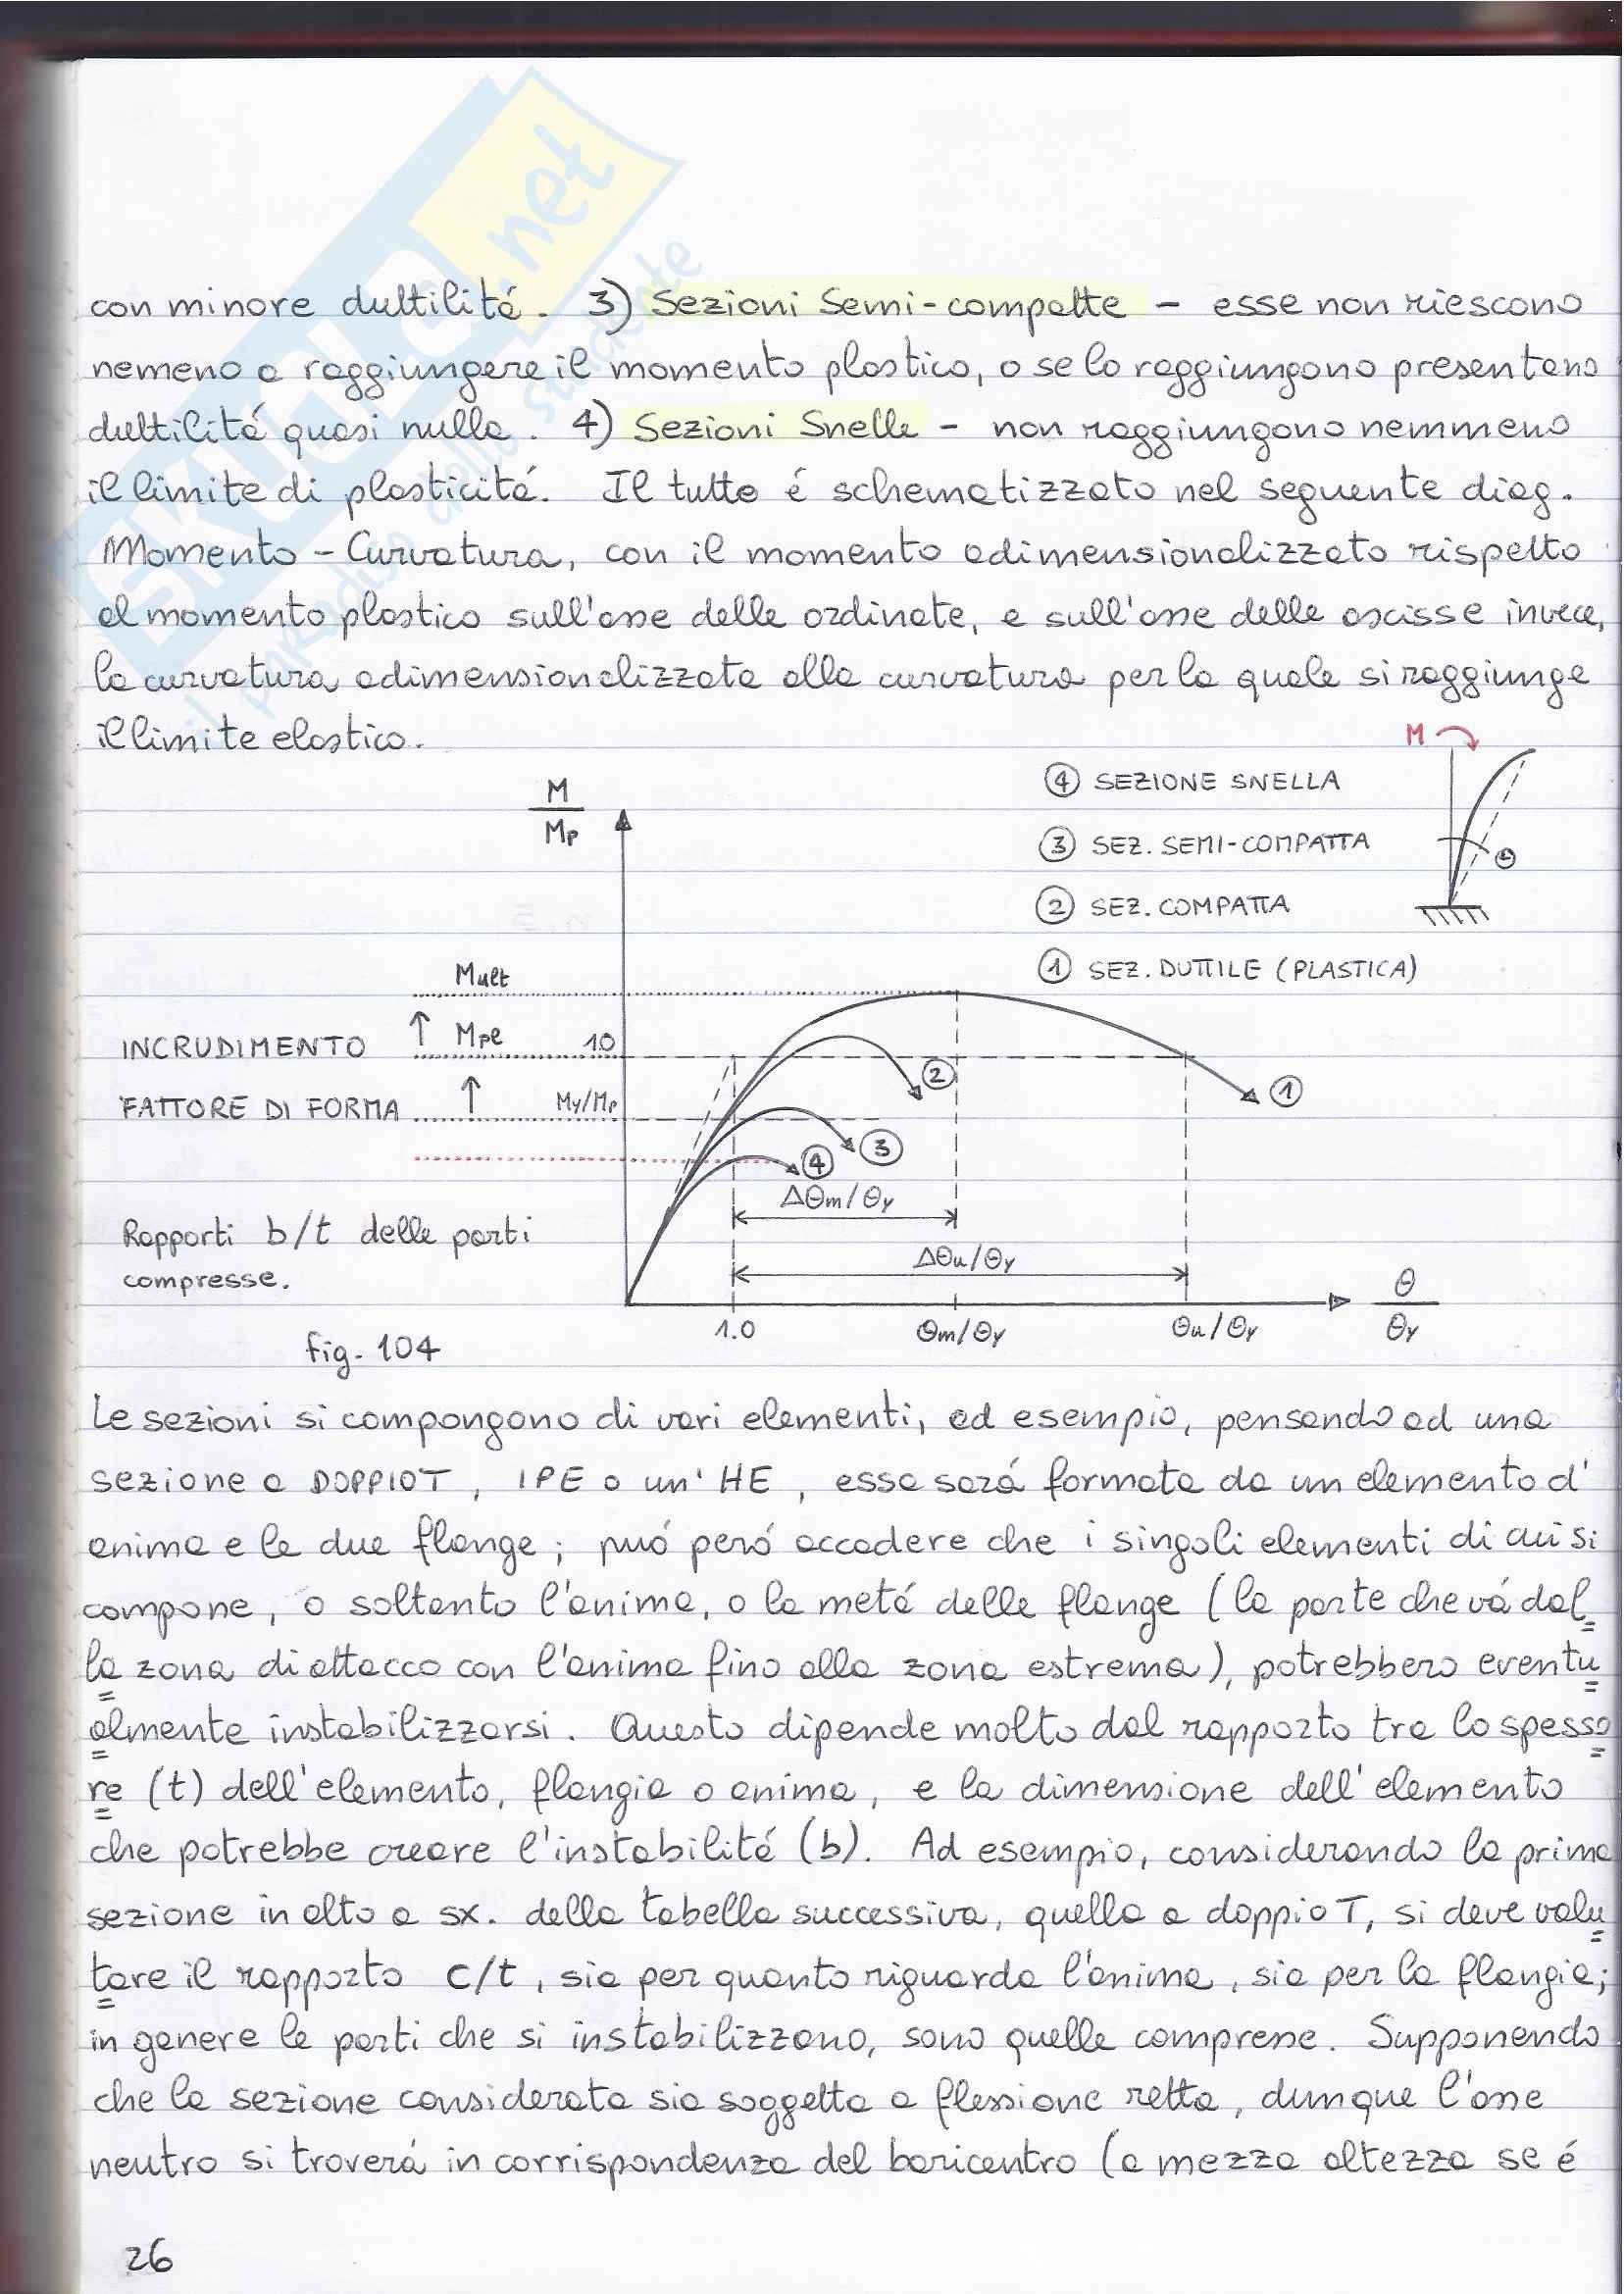 SKUOLA.net
il paradiso dello studente
con minore duttilitá. 3) Sezioni Semi-compatte – esse non riescono
nemeno a raggiungere il momento plastico, o se lo raggiungono presentano
duttilitá quasi nulla. 4) Sezioni Snelle – non raggiungono nemmeno
il limite di plasticitá. Il tutto é schematizzato nel seguente diag.
Momento – Curvatura, con il momento adimensionalizzato rispetto
al momento plastico sull'asse delle ordinate, e sull'asse delle ascisse invece,
la curvatura adimensionalizzata alla curvatura per la quale si raggiunge
il limite elastico.
M
④ SEZIONE SNELLA
③ SEZ. SEMI-COMPATTA
② SEZ. COMPATTA
① SEZ. DUTTILE (PLASTICA)
Θ
M
Mp
Mult
INCRUDIMENTO ↑ Mpl 1.0
FATTORE DI FORMA ↑ My/Mp
② ①
③
④
ΔΘm/Θy
Rapporti b/t delle parti
compresse.
ΔΘu/Θy
1.0 Θm/Θy Θu/Θy
Θ
Θy
fig. 104
Le sezioni si compongono di vari elementi, ad esempio, pensando ad una
sezione a DOPPIO T, IPE o un' HE, essa sará formata da un elemento d'
anima e le due flange; puó peró accadere che i singoli elementi di cui si
compone, o soltanto l'anima, o la metá delle flange (la parte che vá dal
la zona di attacco con l'anima fino alla zona estrema), potrebbero eventu
almente instabilizzarsi. Questo dipende molto dal rapporto tra lo spesso
re (t) dell'elemento, flangia o anima, e la dimensione dell'elemento
che potrebbe creare l'instabilitá (b). Ad esempio, considerando la prima
sezione in alto a sx. della tabella successiva, quella a doppio T, si deve valu
tare il rapporto c/t, sia per quanto riguarda l'anima, sia per la flangia;
in genere le parti che si instabilizzano, sono quelle compresse. Supponendo
che la sezione considerata sia soggetta a flessione retta, dunque l'asse
neutro si troverá in corrispondenza del baricentro (a mezza altezza se é
26